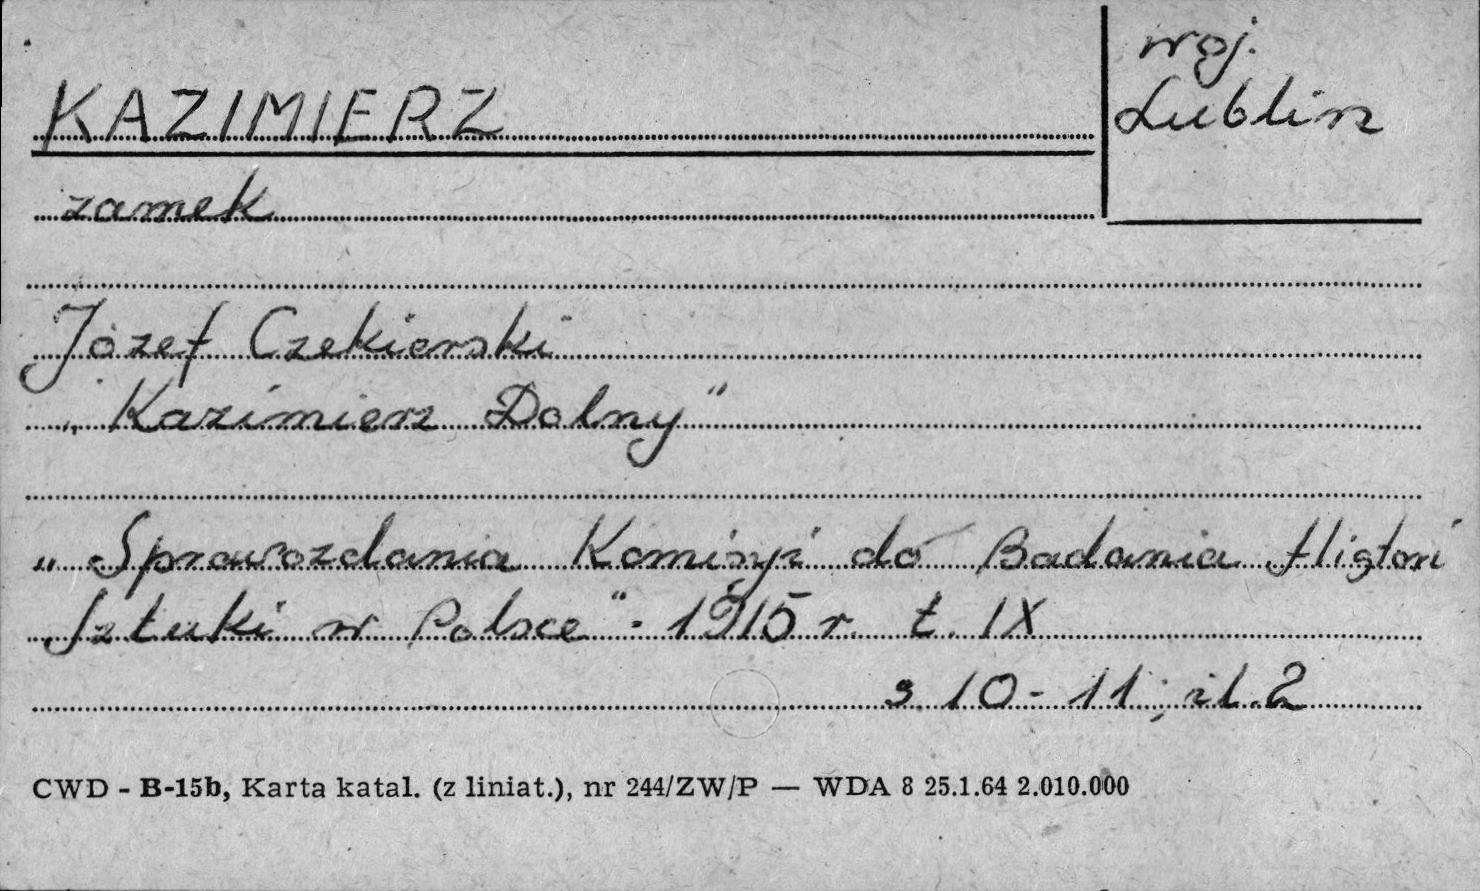 KAZIMIERZ
woj.
Lublin
zamek
Józef Czekierski
„Kazimierz Dolny"
„Sprawozdania Komisyi do Badania Histori
Sztuki w Polsce". 1915 r. t. IX
s. 10-11; il. 2
CWD - B-15b, Karta katal. (z liniat.), nr 244/ZW/P — WDA 8 25.1.64 2.010.000